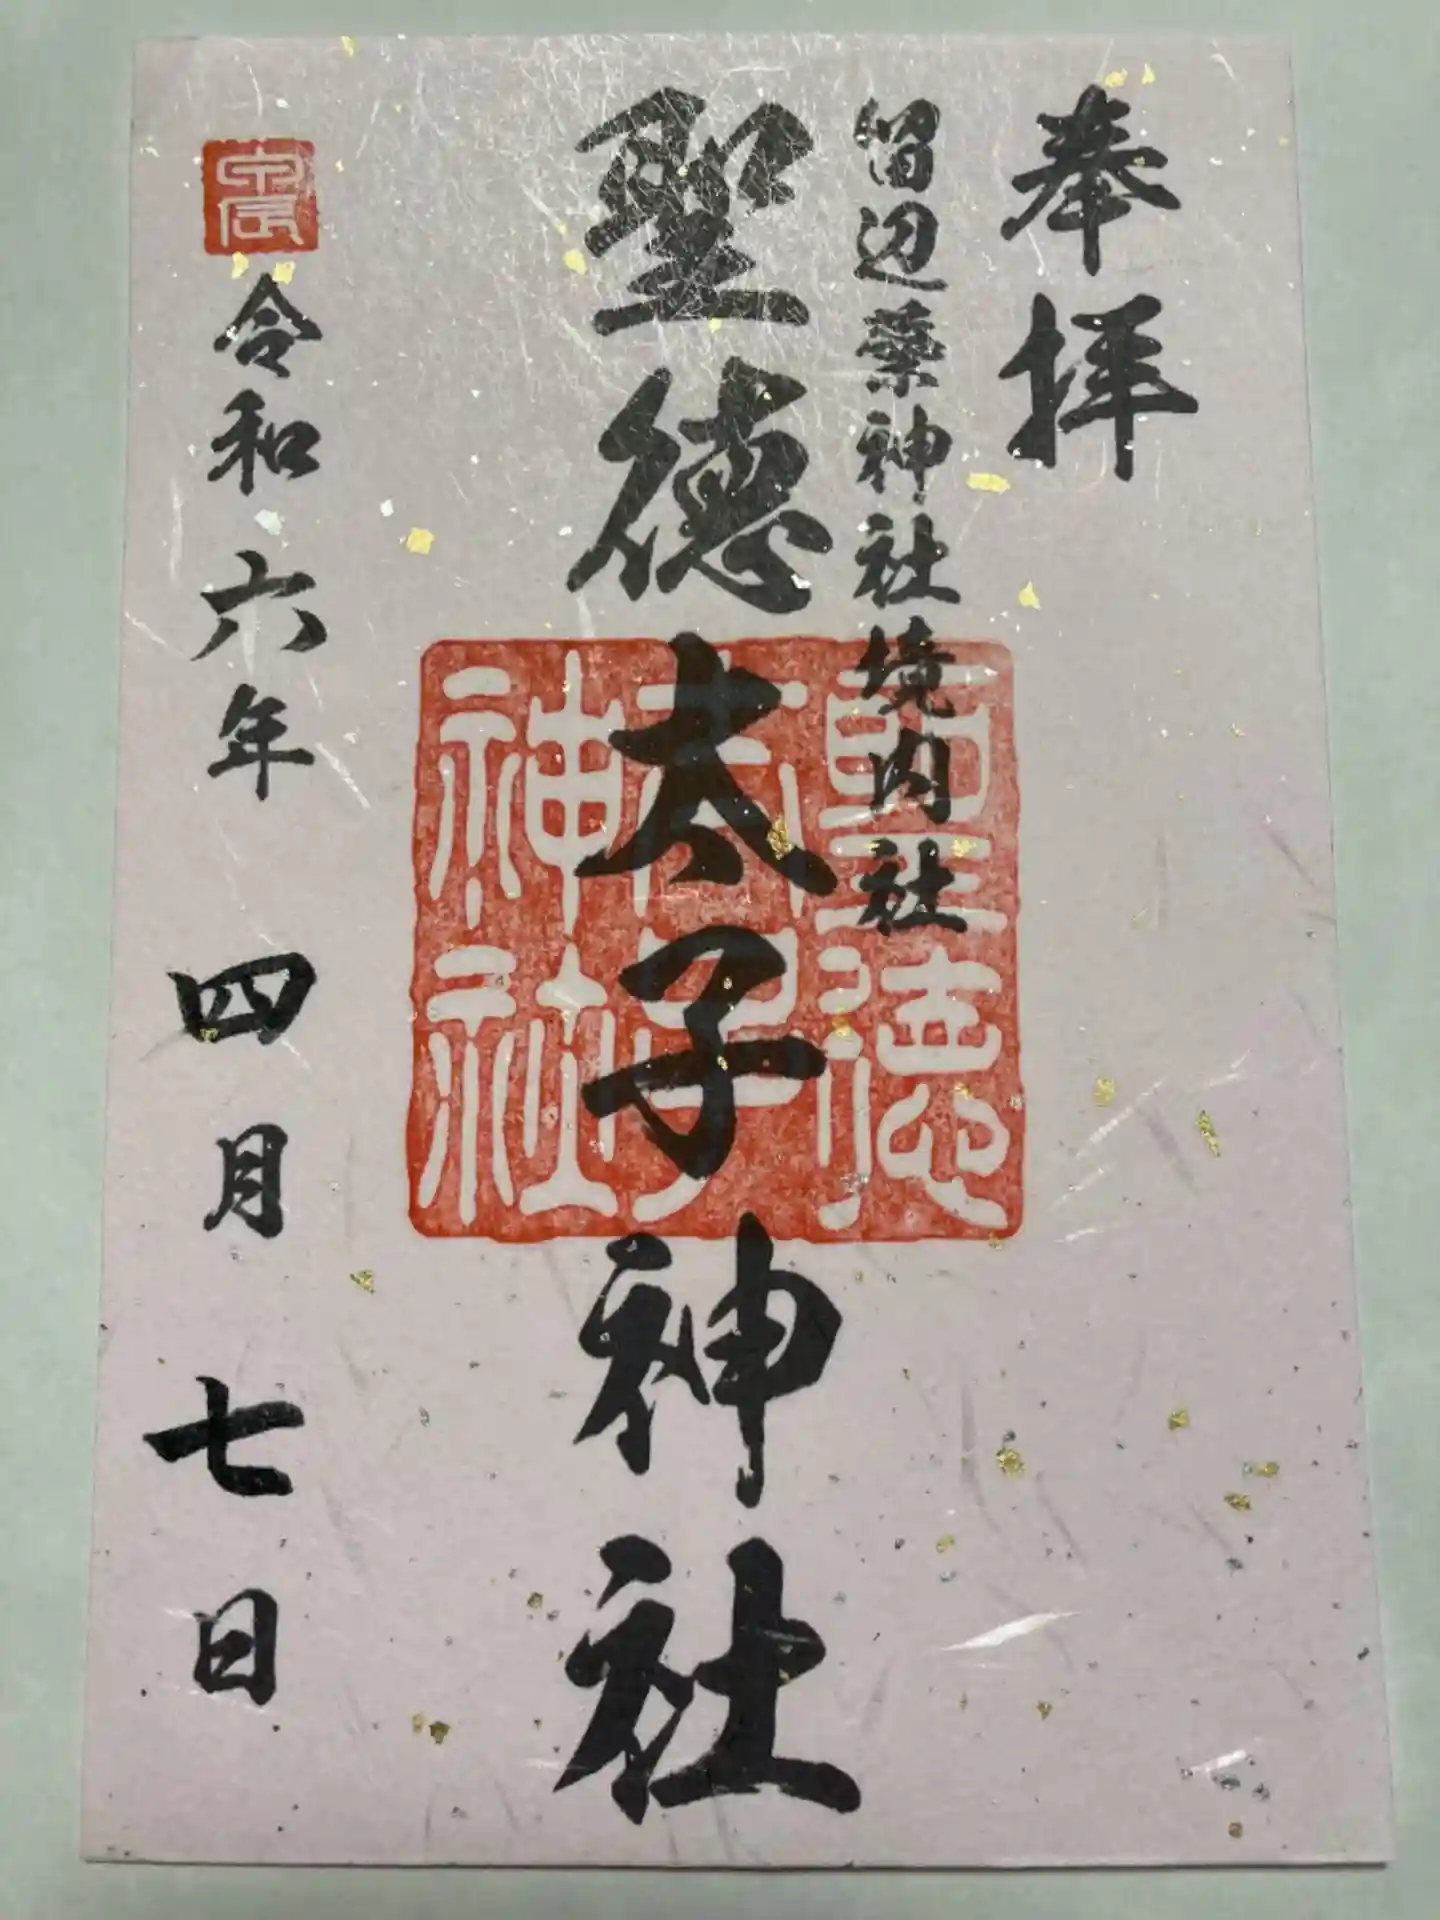 奉拝
留辺蘂神社境内社
聖徳太子神社
聖徳
太子
神社
令和六年 四月七日